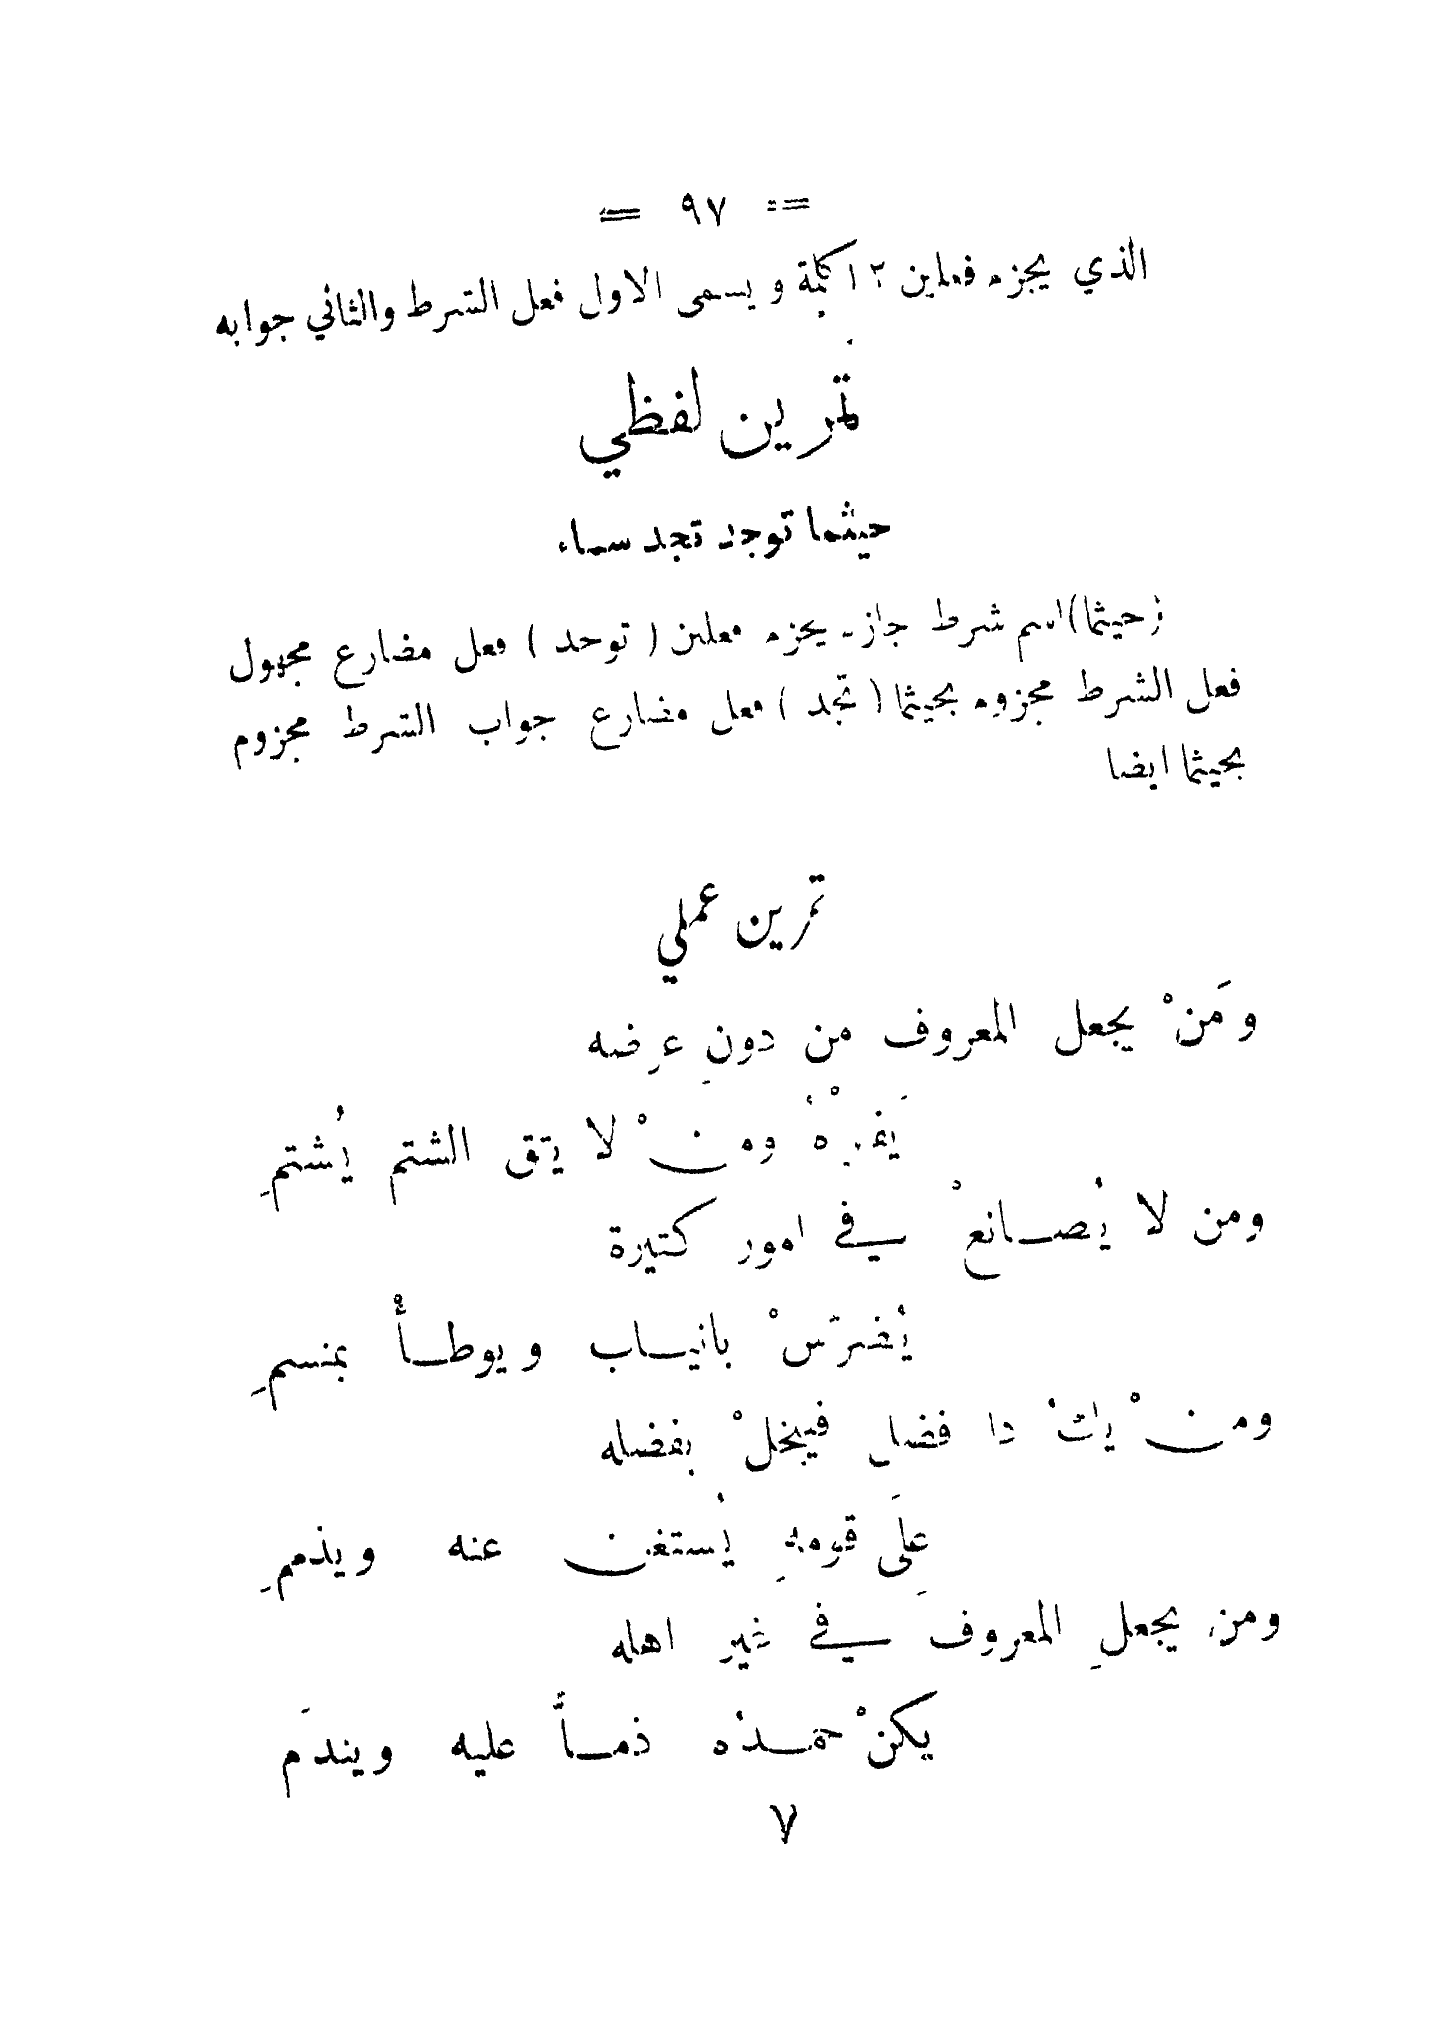 = ٩٧ =
الذي يجزم فعلين ٢ اكلمة ويسمى الاول فعل الشرط والثاني جوابه
تمرين لفظي
حيثما توجد تجد سماء
(حيثما) اسم شرط جازم يجزم فعلين (توجد) فعل مضارع مجهول
فعل الشرط مجزوم بحيثما (تجد) فعل مضارع جواب الشرط مجزوم
بحيثما ايضا
تمرين عملي
ومَنْ يجعل المعروف من دونِ عرضه
يَفرْهُ ومنْ لا يتق الشتم يُشتمِ
ومن لا يُصانعْ في امور كثيرة
يُضرّسْ بانياب ويوطأْ بمنسمِ
ومنْ يكُ ذا فضل فيبخلْ بفضله
عَلَى قومهِ يُستغن عنه ويذممِ
ومن يجعلِ المعروفَ في غير اهله
يكنْ حمدُه ذماً عليه ويندَم
٧